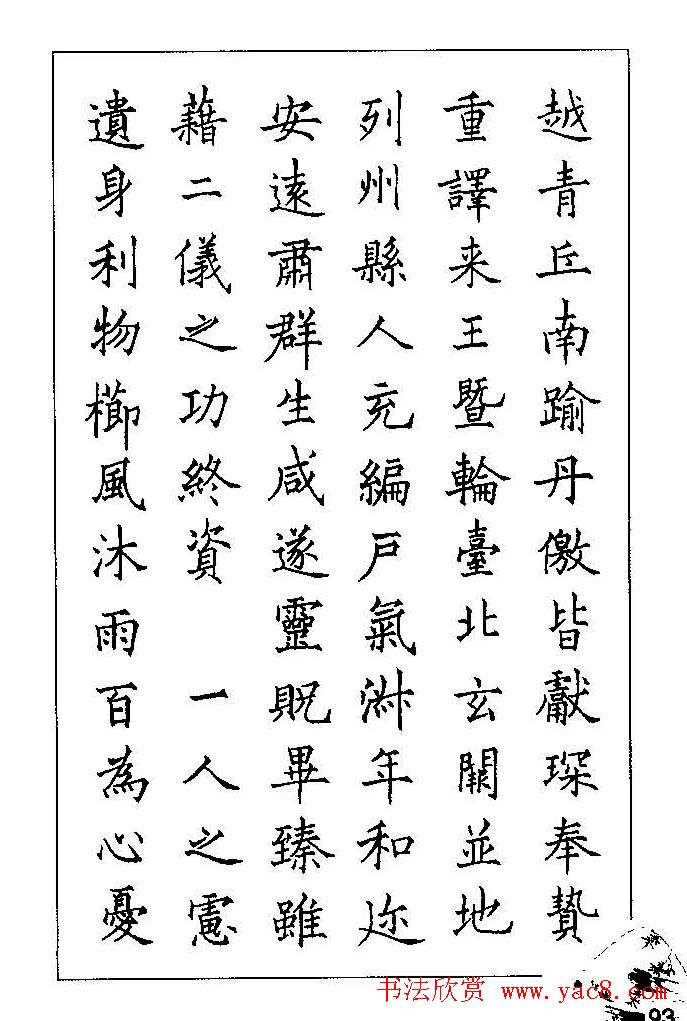 越青丘南踰丹徼皆獻琛奉贄
重譯来王暨輪臺北玄闕並地
列州縣人充編戶氣淑年和迩
安遠肅群生咸遂靈貺畢臻雖
藉二儀之功終資 一人之慮
遺身利物櫛風沐雨百為心憂
书法欣赏 www.yac8.com
93